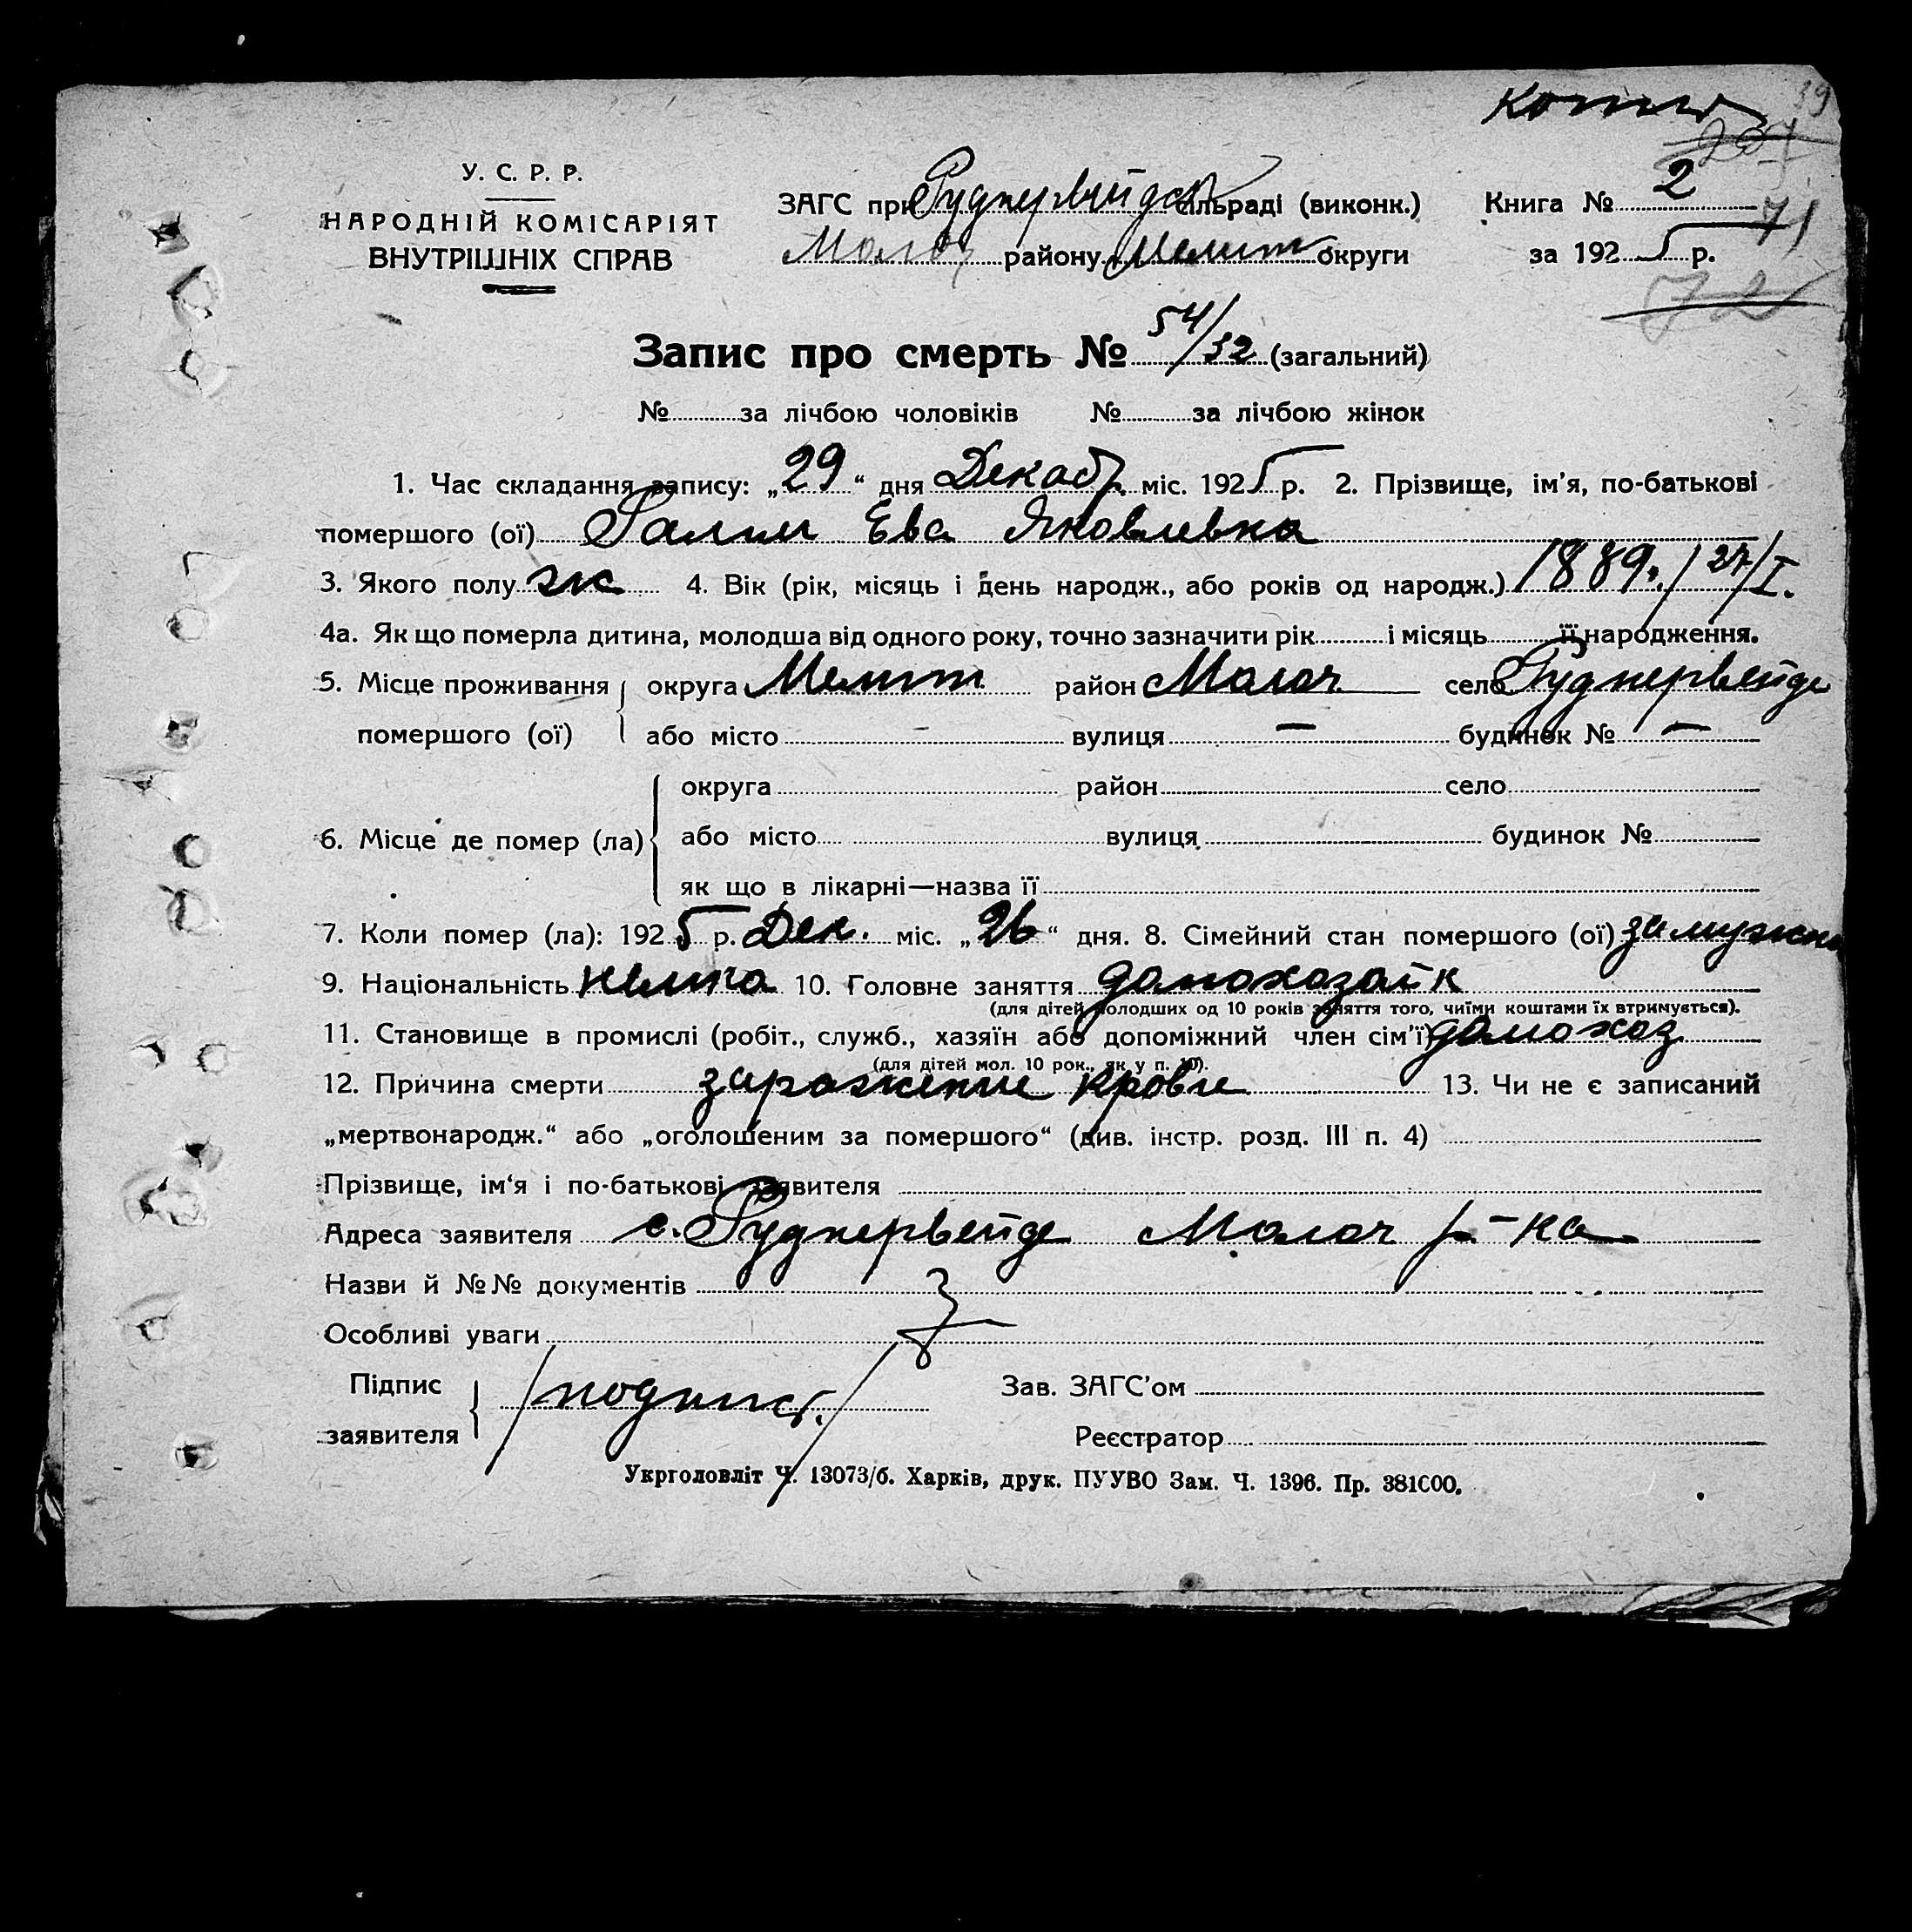 Копия 39
207
У. С. Р. Р.
НАРОДНІЙ КОМІСАРІЯТ
ВНУТРІШНІХ СПРАВ
ЗАГС при Руднервейдск сільраді (виконк.) Книга № 2
Молоч району Мелит округи за 1925 р. 71
72
Запис про смерть № 54/32 (загальний)
№ за лічбою чоловіків № за лічбою жінок
1. Час складання запису: „29“ дня Декабр. міс. 1925 р. 2. Прізвище, ім’я, по-батькові
помершого (ої) Ева Яковлевна
3. Якого полу ж 4. Вік (рік, місяць і день народж., або років од народж.) 1889. / 24/I.
4а. Як що померла дитина, молодша від одного року, точно зазначити рік і місяць її народження.
5. Місце проживання округа Мелит. район Молоч. село Руднервейде
помершого (ої) або місто — вулиця — будинок № —
округа район село
6. Місце де помер (ла) або місто вулиця будинок №
як що в лікарні—назва її
7. Коли помер (ла): 1925 р. Дек. міс. „26“ дня. 8. Сімейний стан помершого (ої) замужня
9. Національність немка 10. Головне заняття домохозайк
(для дітей молодших од 10 років заняття того, чиїми коштами їх втримується).
11. Становище в промислі (робіт., служб., хазяїн або допоміжний член сім’ї) домохоз
(для дітей мол. 10 рок., як у п. 10).
12. Причина смерти заражение крови 13. Чи не є записаний
„мертвонародж.“ або „оголошеним за помершого“ (див. інстр. розд. III п. 4)
Прізвище, ім‘я і по-батькові заявителя
Адреса заявителя с. Руднервейде Молоч р-ка
Назви й №№ документів
Особливі уваги
Підпис Зав. ЗАГС’ом
/подпись/
заявителя Реєстратор
Укрголовліт Ч. 13073/б. Харків, друк. ПУУВО Зам. Ч. 1396. Пр. 381000.